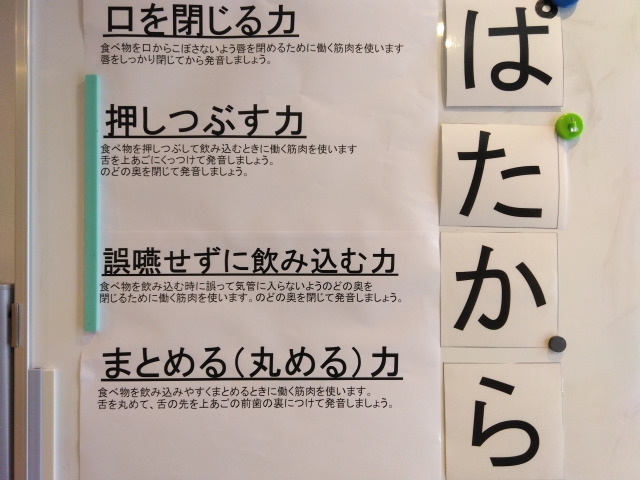 口を閉じる力
食べ物を口からこぼさないよう唇を閉めるために働く筋肉を使います
唇をしっかり閉じてから発音しましょう。
ぱ
押しつぶす力
食べ物を押しつぶして飲み込むときに働く筋肉を使います
舌を上あごにくっつけて発音しましょう。
のどの奥を閉じて発音しましょう。
た
誤嚥せずに飲み込む力
食べ物を飲み込む時に誤って気管に入らないようのどの奥を
閉じるために働く筋肉を使います。のどの奥を閉じて発音しましょう。
か
まとめる（丸める）力
食べ物を飲み込みやすくまとめるときに働く筋肉を使います。
舌を丸めて、舌の先を上あごの前歯の裏につけて発音しましょう。
ら